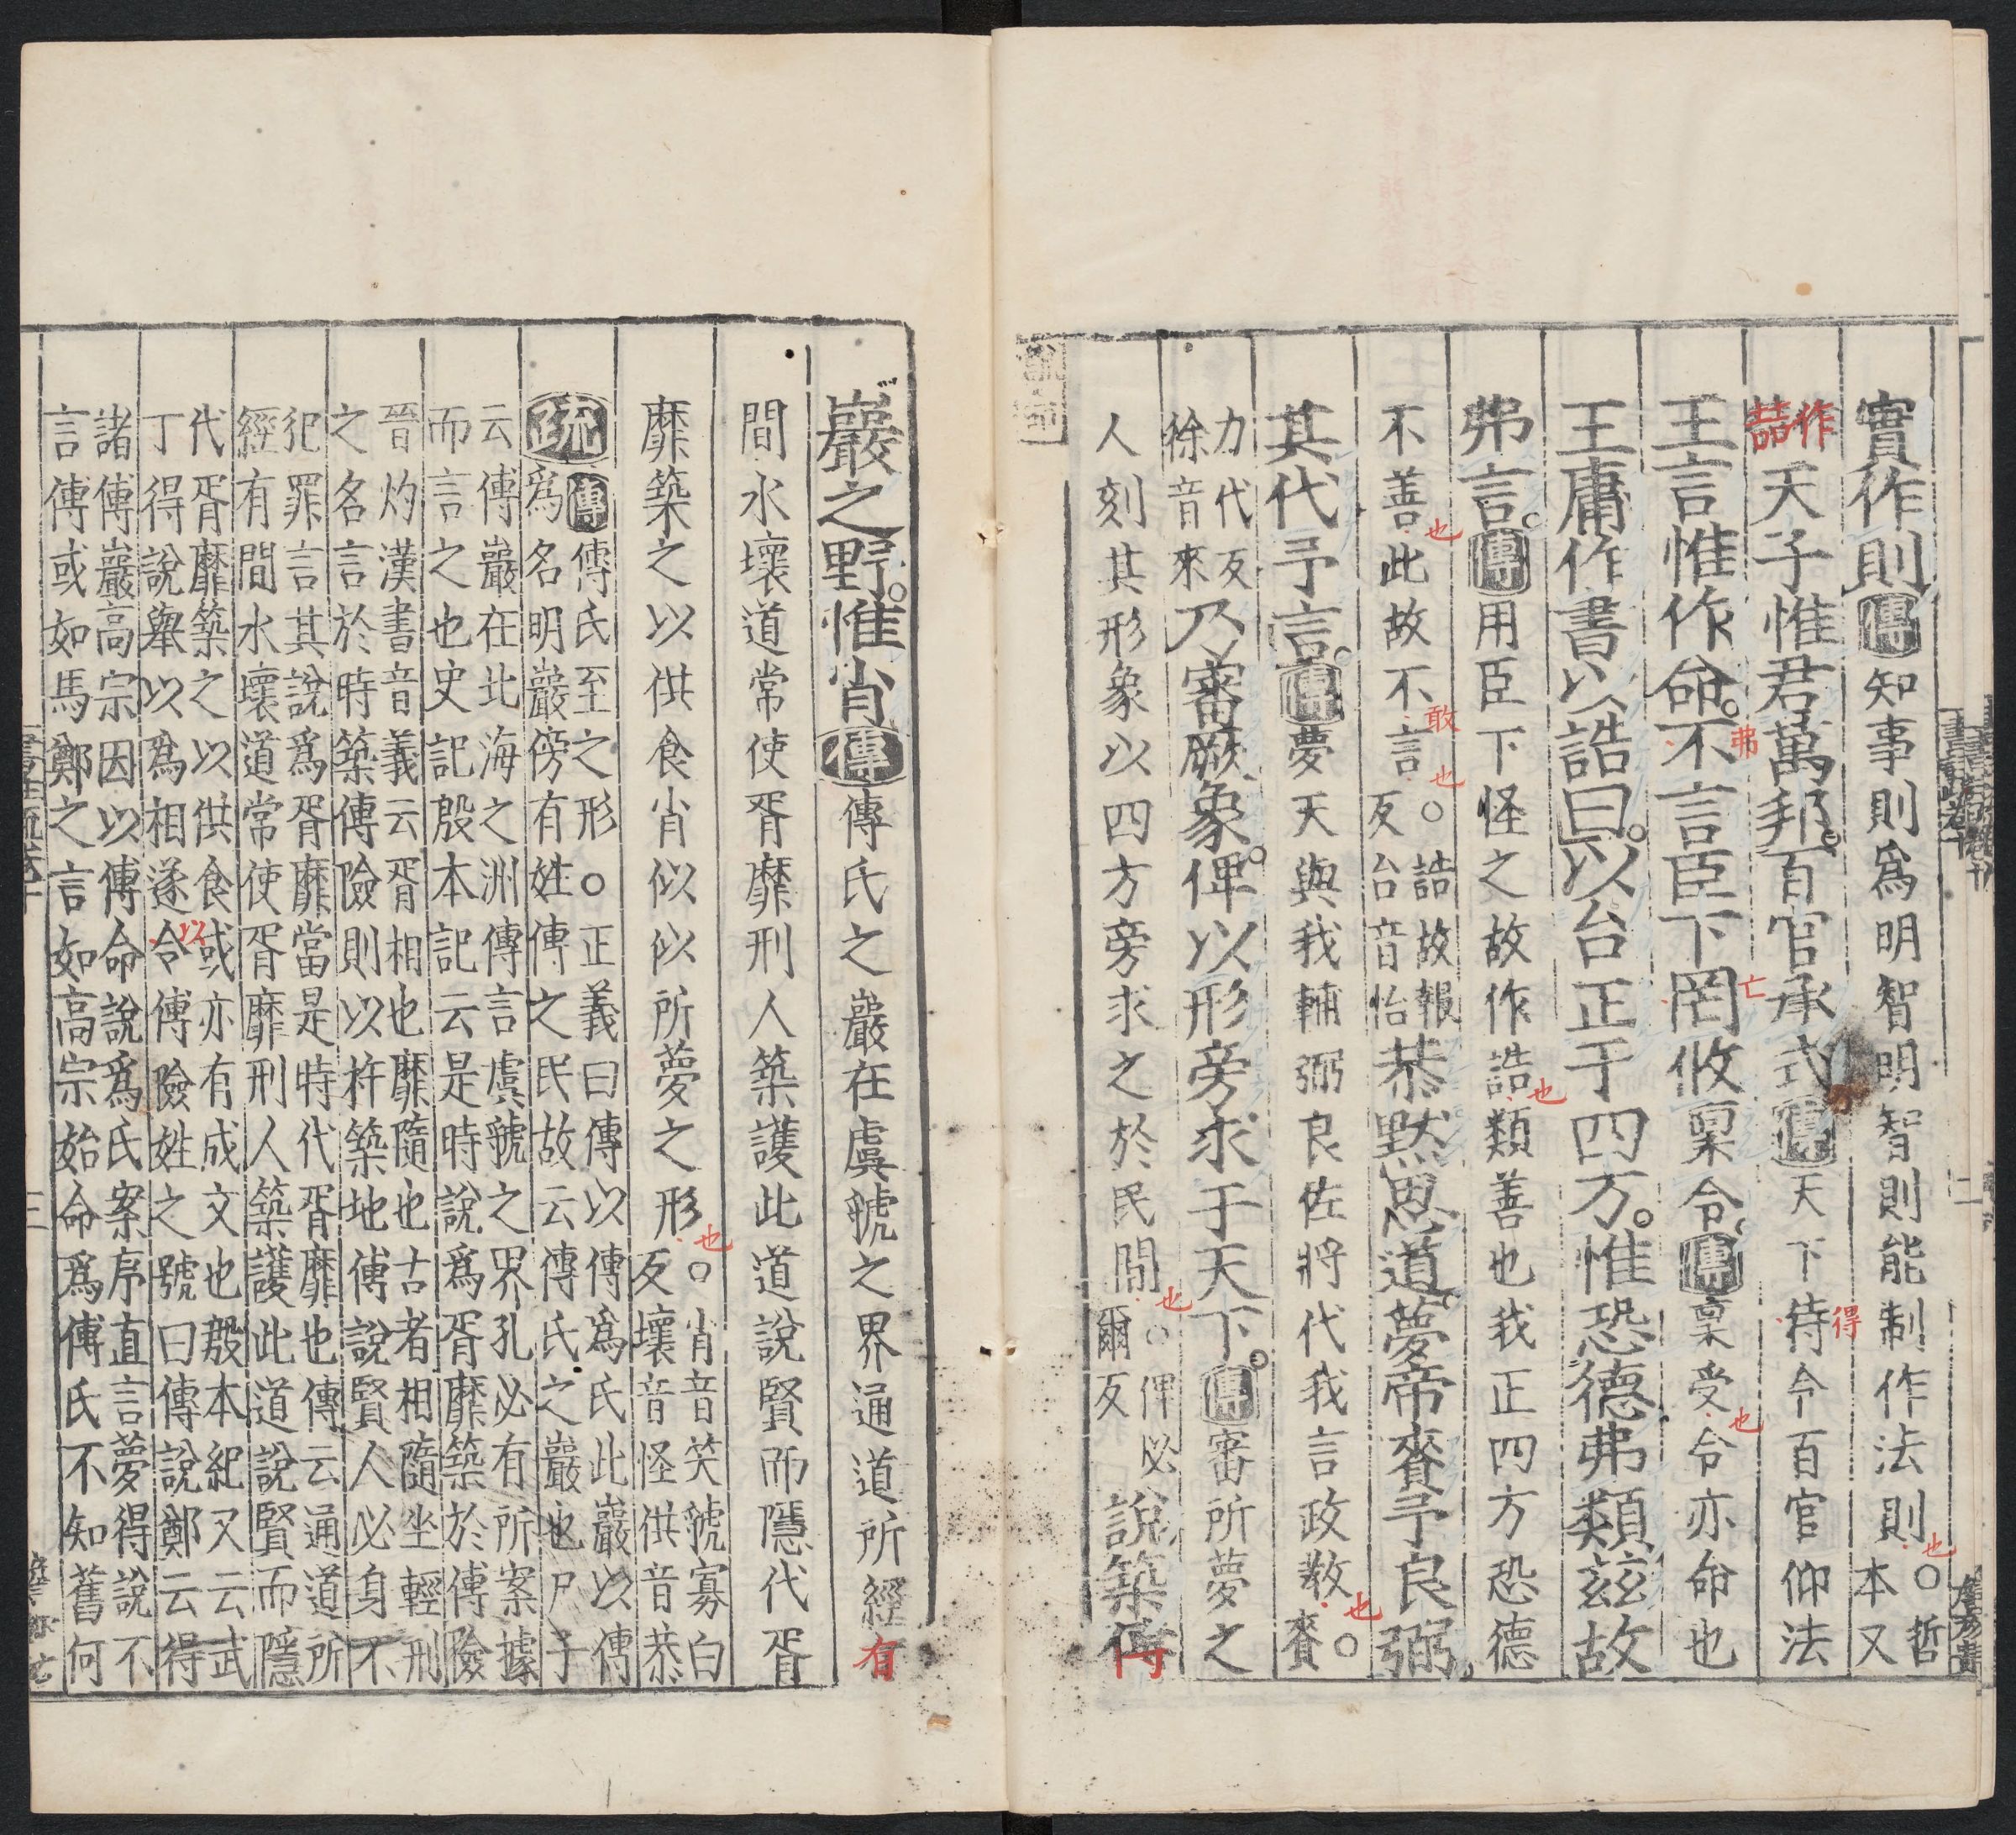 實作則傳知事則爲明智明智則能制作法則也○哲本又
作喆天子惟君萬邦百官承式傳天下待得令百官仰法
王言惟作命不弗言臣下罔亡攸稟令傳稟受也令亦命也
王庸作書以誥曰以台正于四方惟恐德弗類茲故
弗言傳用臣下怪之故作誥也類善也我正四方恐德
不善也此故不敢言也○誥故報反台音怡恭默思道夢帝賚予良弼
其代予言傳夢天與我輔弼良佐將代我言政教也○賚
力代反徐音來乃審厥象俾以形旁求于天下傳審所夢之
人刻其形象以四方旁求之於民間也○俾必爾反說築傅
巖之野惟肖傳傅氏之巖在虞虢之界通道所經有
間水壞道常使胥靡刑人築護此道說賢而隱代胥
靡築之以供食肖似似所夢之形也○肖音笑虢寡白反壞音怪供音恭
疏傳傅氏至之形○正義曰傳以傅爲氏此巖以傅
爲名明巖傍有姓傅之民故云傅氏之巖也尸子
云傅巖在北海之洲傳言虞虢之界孔必有所案據
而言之也史記殷本記云是時說爲胥靡築於傅險
晉灼漢書音義云胥相也靡隨也古者相隨坐輕刑
之名言於時築傅險則以杵築地傅說賢人必身不
犯罪言其說爲胥靡當是時代胥靡也傳云通道所
經有間水壞道常使胥靡刑人築護此道說賢而隱
代胥靡築之以供食或亦有成文也殷本紀又云武
丁得說舉以爲相遂令以傅險姓之號曰傅說鄭云得
諸傅巖高宗因以傅命說爲氏案序直言夢得說不
言傅或如馬鄭之言如高宗始命爲傅氏不知舊何